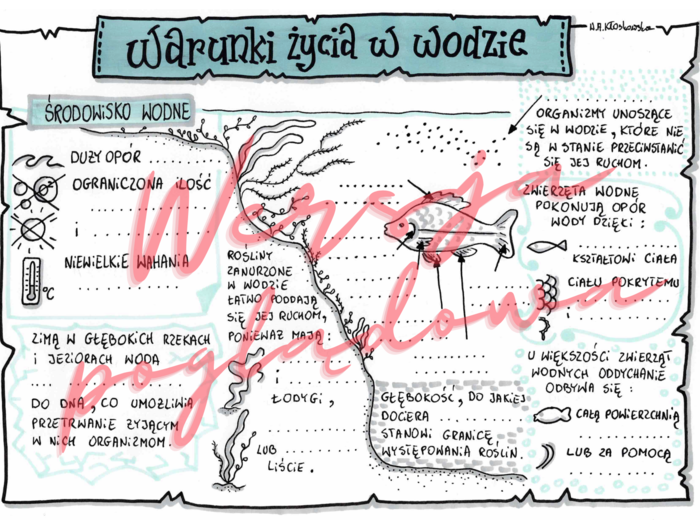 A.A.Kłoskowska
Warunki życia w wodzie
ŚRODOWISKO WODNE
DUŻY OPÓR ..........
OGRANICZONA ILOŚĆ
..................
i ................
NIEWIELKIE WAHANIA
..................
°C
ZIMĄ W GŁĘBOKICH RZEKACH
I JEZIORACH WODA
.... ..................
DO DNA, CO UMOŻLIWIA
PRZETRWANIE ŻYJĄCYM
W NICH ORGANIZMOM.
ROŚLINY
ZANURZONE
W WODZIE
ŁATWO PODDAJĄ
SIĘ JEJ RUCHOM,
PONIEWAŻ MAJĄ:
..................
i ................
ŁODYGI,
..................
LUB ..............
LIŚCIE.
GŁĘBOKOŚĆ, DO JAKIEJ
DOCIERA ..........
STANOWI GRANICĘ
WYSTĘPOWANIA ROŚLIN.
..................
ORGANIZMY UNOSZĄCE
SIĘ W WODZIE, KTÓRE NIE
SĄ W STANIE PRZECIWSTAWIĆ
SIĘ JEJ RUCHOM.
ZWIERZĘTA WODNE
POKONUJĄ OPÓR
WODY DZIĘKI:
..................
KSZTAŁTOWI CIAŁA
CIAŁU POKRYTEMU
..................
i ................
U WIĘKSZOŚCI ZWIERZĄT
WODNYCH ODDYCHANIE
ODBYWA SIĘ:
CAŁĄ POWIERZCHNIĄ
..................
LUB ZA POMOCĄ
..................
Wersja
poglądowa